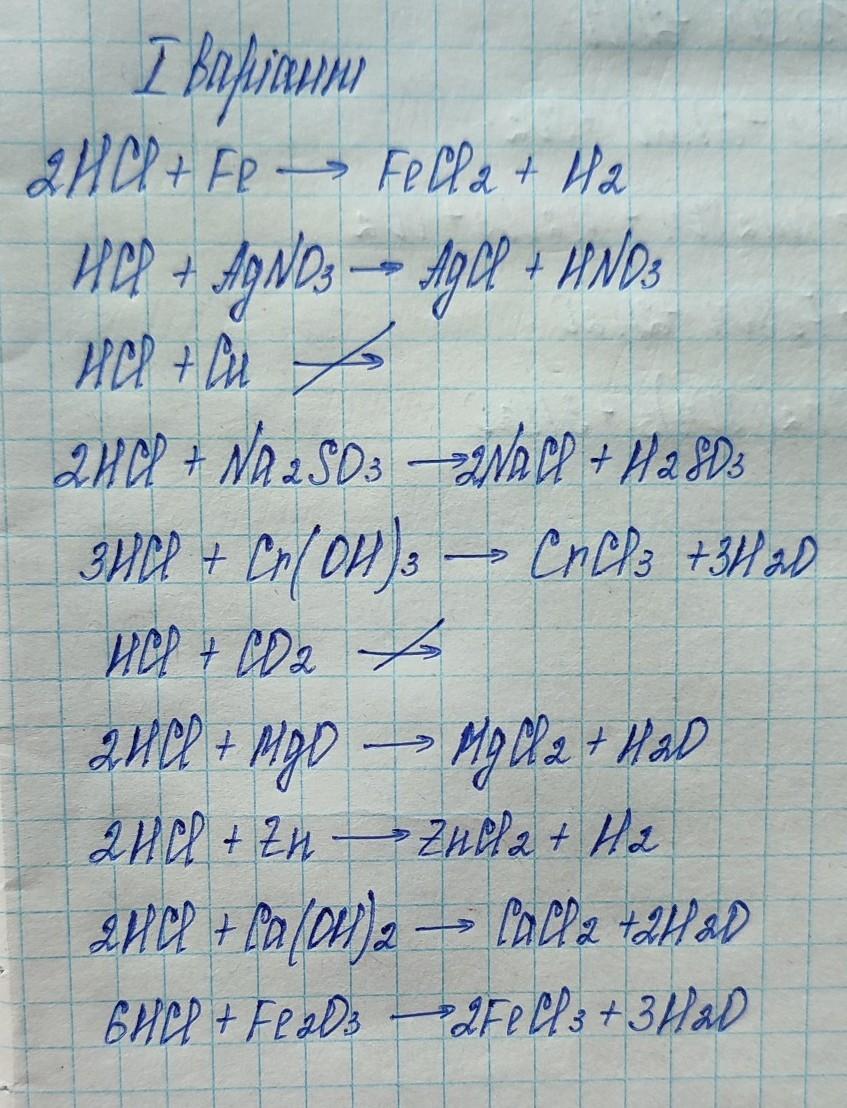 I варіант
2HCl + Fe → FeCl2 + H2
HCl + AgNO3 → AgCl + HNO3
HCl + Cu ↛
2HCl + Na2SO3 → 2NaCl + H2SO3
3HCl + Cr(OH)3 → CrCl3 + 3H2O
HCl + CO2 ↛
2HCl + MgO → MgCl2 + H2O
2HCl + Zn → ZnCl2 + H2
2HCl + Ca(OH)2 → CaCl2 + 2H2O
6HCl + Fe2O3 → 2FeCl3 + 3H2O